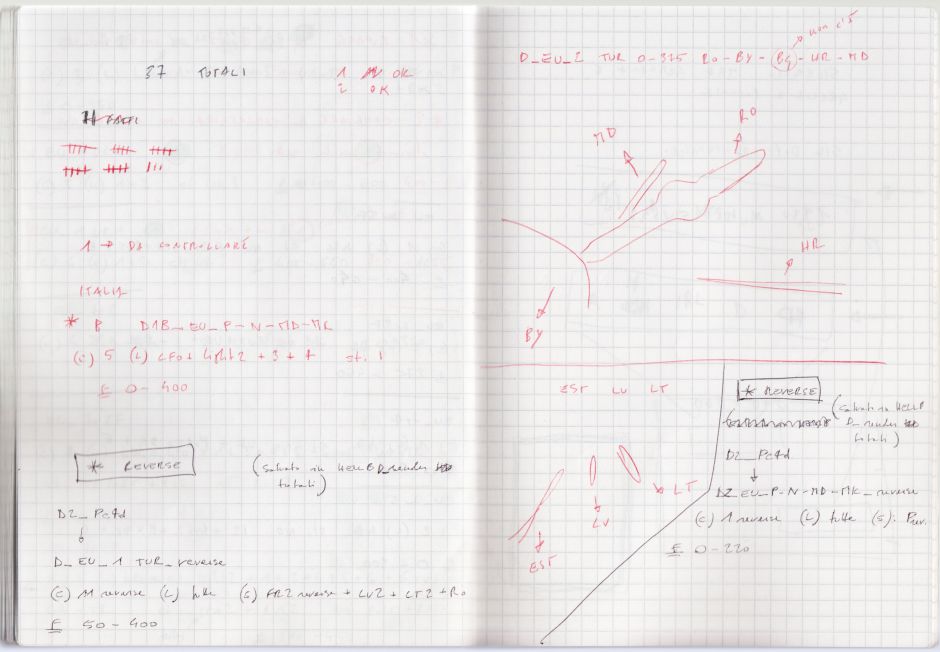 37 TOTALI
1 OK
2 OK
FATTI
1 → DA CONTROLLARE
ITALIA
* P D1B_EU_P-N-MD-MK
(C) 5 (L) CFO + light 2 + 3 + 4 st. 1
F 0-400
* REVERSE
(salvato in HELP D_render
totali)
D2_Pc4d
↓
D_EU_1 TUR_reverse
(C) 11 reverse (L) tutte (S) FR2 reverse + LV2 + LT2 + RO
F 50-400
non c'è
D_EU_2 TUR 0-325 RO-BY-(BG)-HR-MD
RO
MD
HR
BY
EST LV LT
LT
LV
EST
* REVERSE
(salvato in HELP
D_render
totali)
D2_Pc4d
↓
D2_EU_P-N-MD-MK_reverse
(C) 1 reverse (L) tutte (S): Prev.
F 0-220